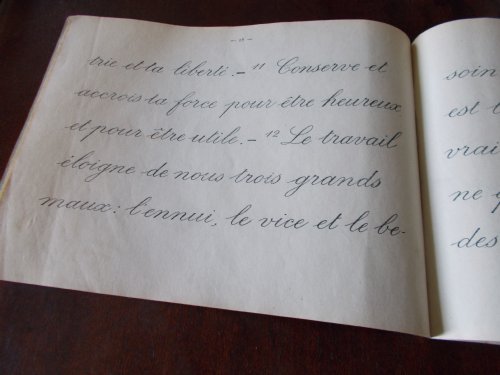 trie et ta liberté. – 11 Conserve et
accrois ta force pour être heureux
et pour être utile. – 12 Le travail
éloigne de nous trois grands
maux : l'ennui, le vice et le be-
soin
est
vrai
ne
des